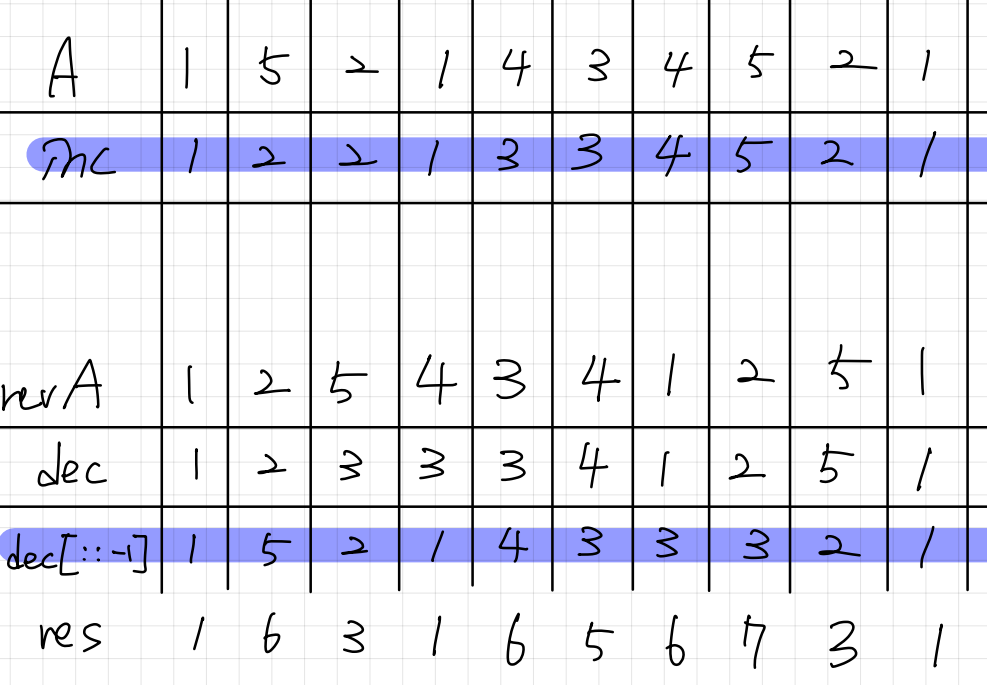 A 1 5 2 1 4 3 4 5 2 1
inc 1 2 2 1 3 3 4 5 2 1
revA 1 2 5 4 3 4 1 2 5 1
dec 1 2 3 3 3 4 1 2 5 1
dec[::-1] 1 5 2 1 4 3 3 3 2 1
res 1 6 3 1 6 5 6 7 3 1